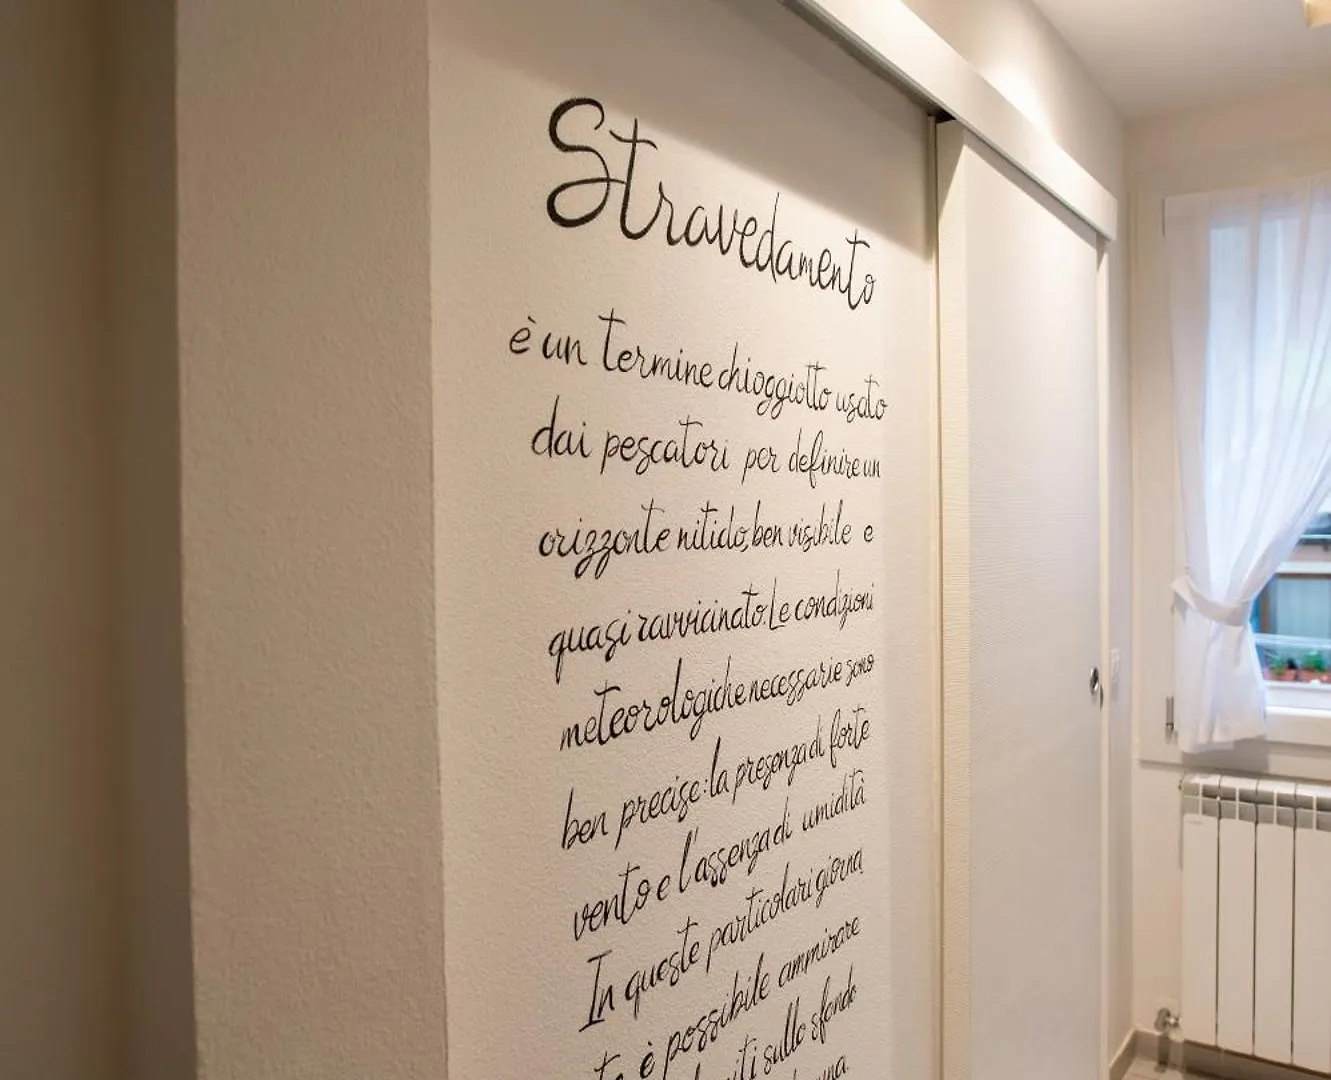 Stravedamento
è un termine chioggiotto usato
dai pescatori per definire un
orizzonte nitido, ben visibile e
quasi ravvicinato. Le condizioni
meteorologiche necessarie sono
ben precise: la presenza di forte
vento e l'assenza di umidità
In queste particolari giorna
te è possibile ammirare
sullo sfondo